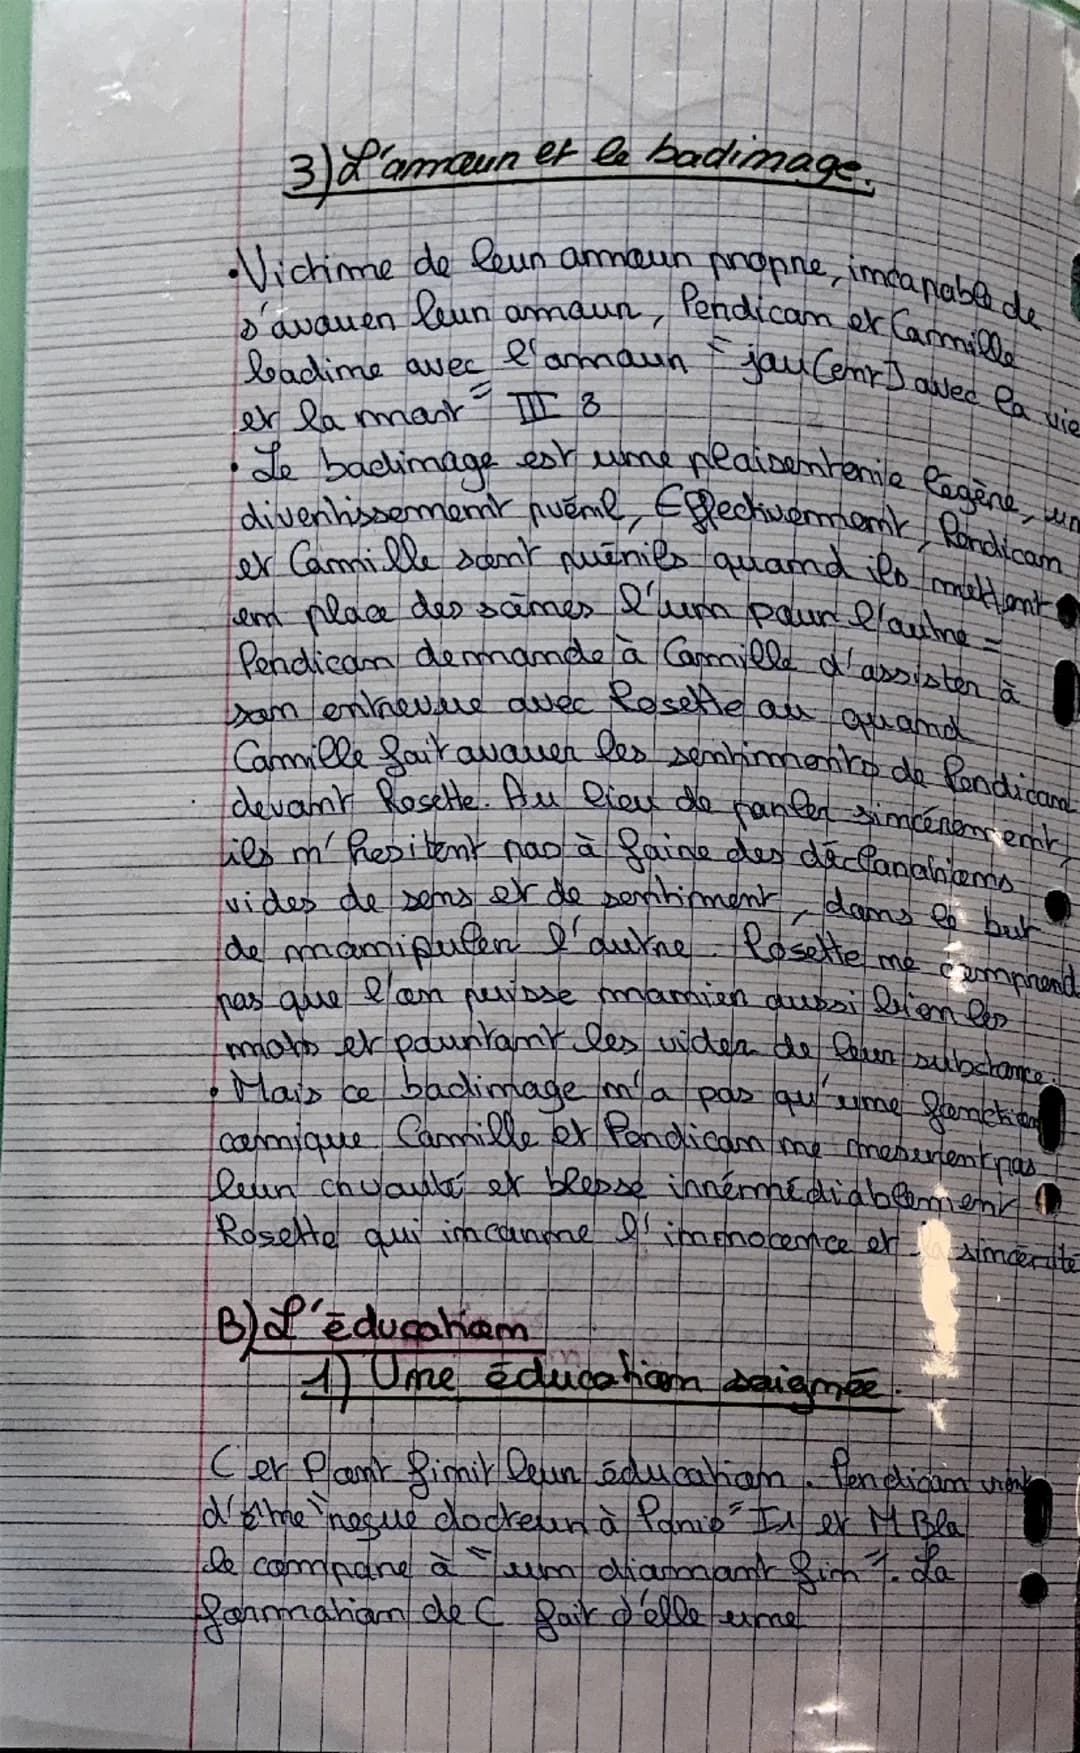 3) L'amour et le badinage.
• Victime de leur amour propre, incapable de
s'avouer leur amour, Perdican et Camille
badine avec l'amour "jou[ent] avec la vie
et la mort" III 8
• Le badinage est une plaisenterie légère, un
divertissement puéril, Effectivement, Perdican
et Camille sont puérils quand ils mettent
en place des scènes l'un pour l'autre =
Perdican demande à Camille d'assister à
son entrevue avec Rosette ou quand
Camille fait avouer les sentiments de Perdican
devant Rosette. Au lieu de parler sincèrement,
ils n'hésitent pas à faire des déclarations
vides de sens et de sentiment, dans le but
de manipuler l'autre. Rosette ne comprend
pas que l'on puisse manier aussi bien les
mots et pourtant les vider de leur substance.
• Mais ce badinage n'a pas qu'une fonction
comique Camille et Perdican ne mesurent pas
leur cruauté et blesse irrémédiablement
Rosette qui incarne l'innocence et la sincérité
B) L'éducation
1) Une éducation soignée.
C et P ont finit leur éducation. Perdican vient
d'être "reçue docteur à Paris" I1 et M Bla
le compare à "un diamant fin". La
formation de C fait d'elle une